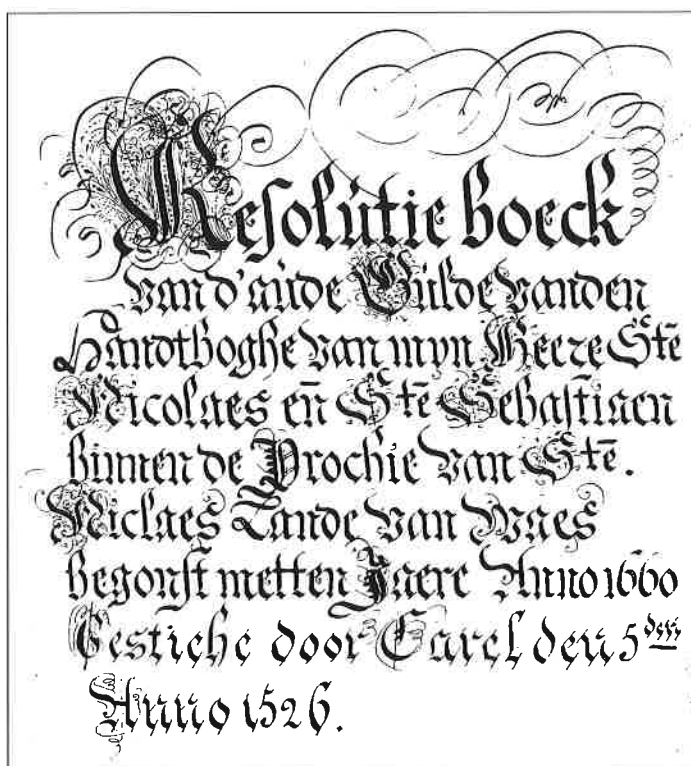 Resolútie boeck
van d'aúde Gúlde vanden
Handtboghe van myn Heere Ste
Nicolaes en̄ Stē Sebastiaen
binnen de Prochie van Stē.
Niclaes Lande van Waes
begonst metten Jaere Anno 1660
Gesticht door Carel den 5den
Anno 1526.